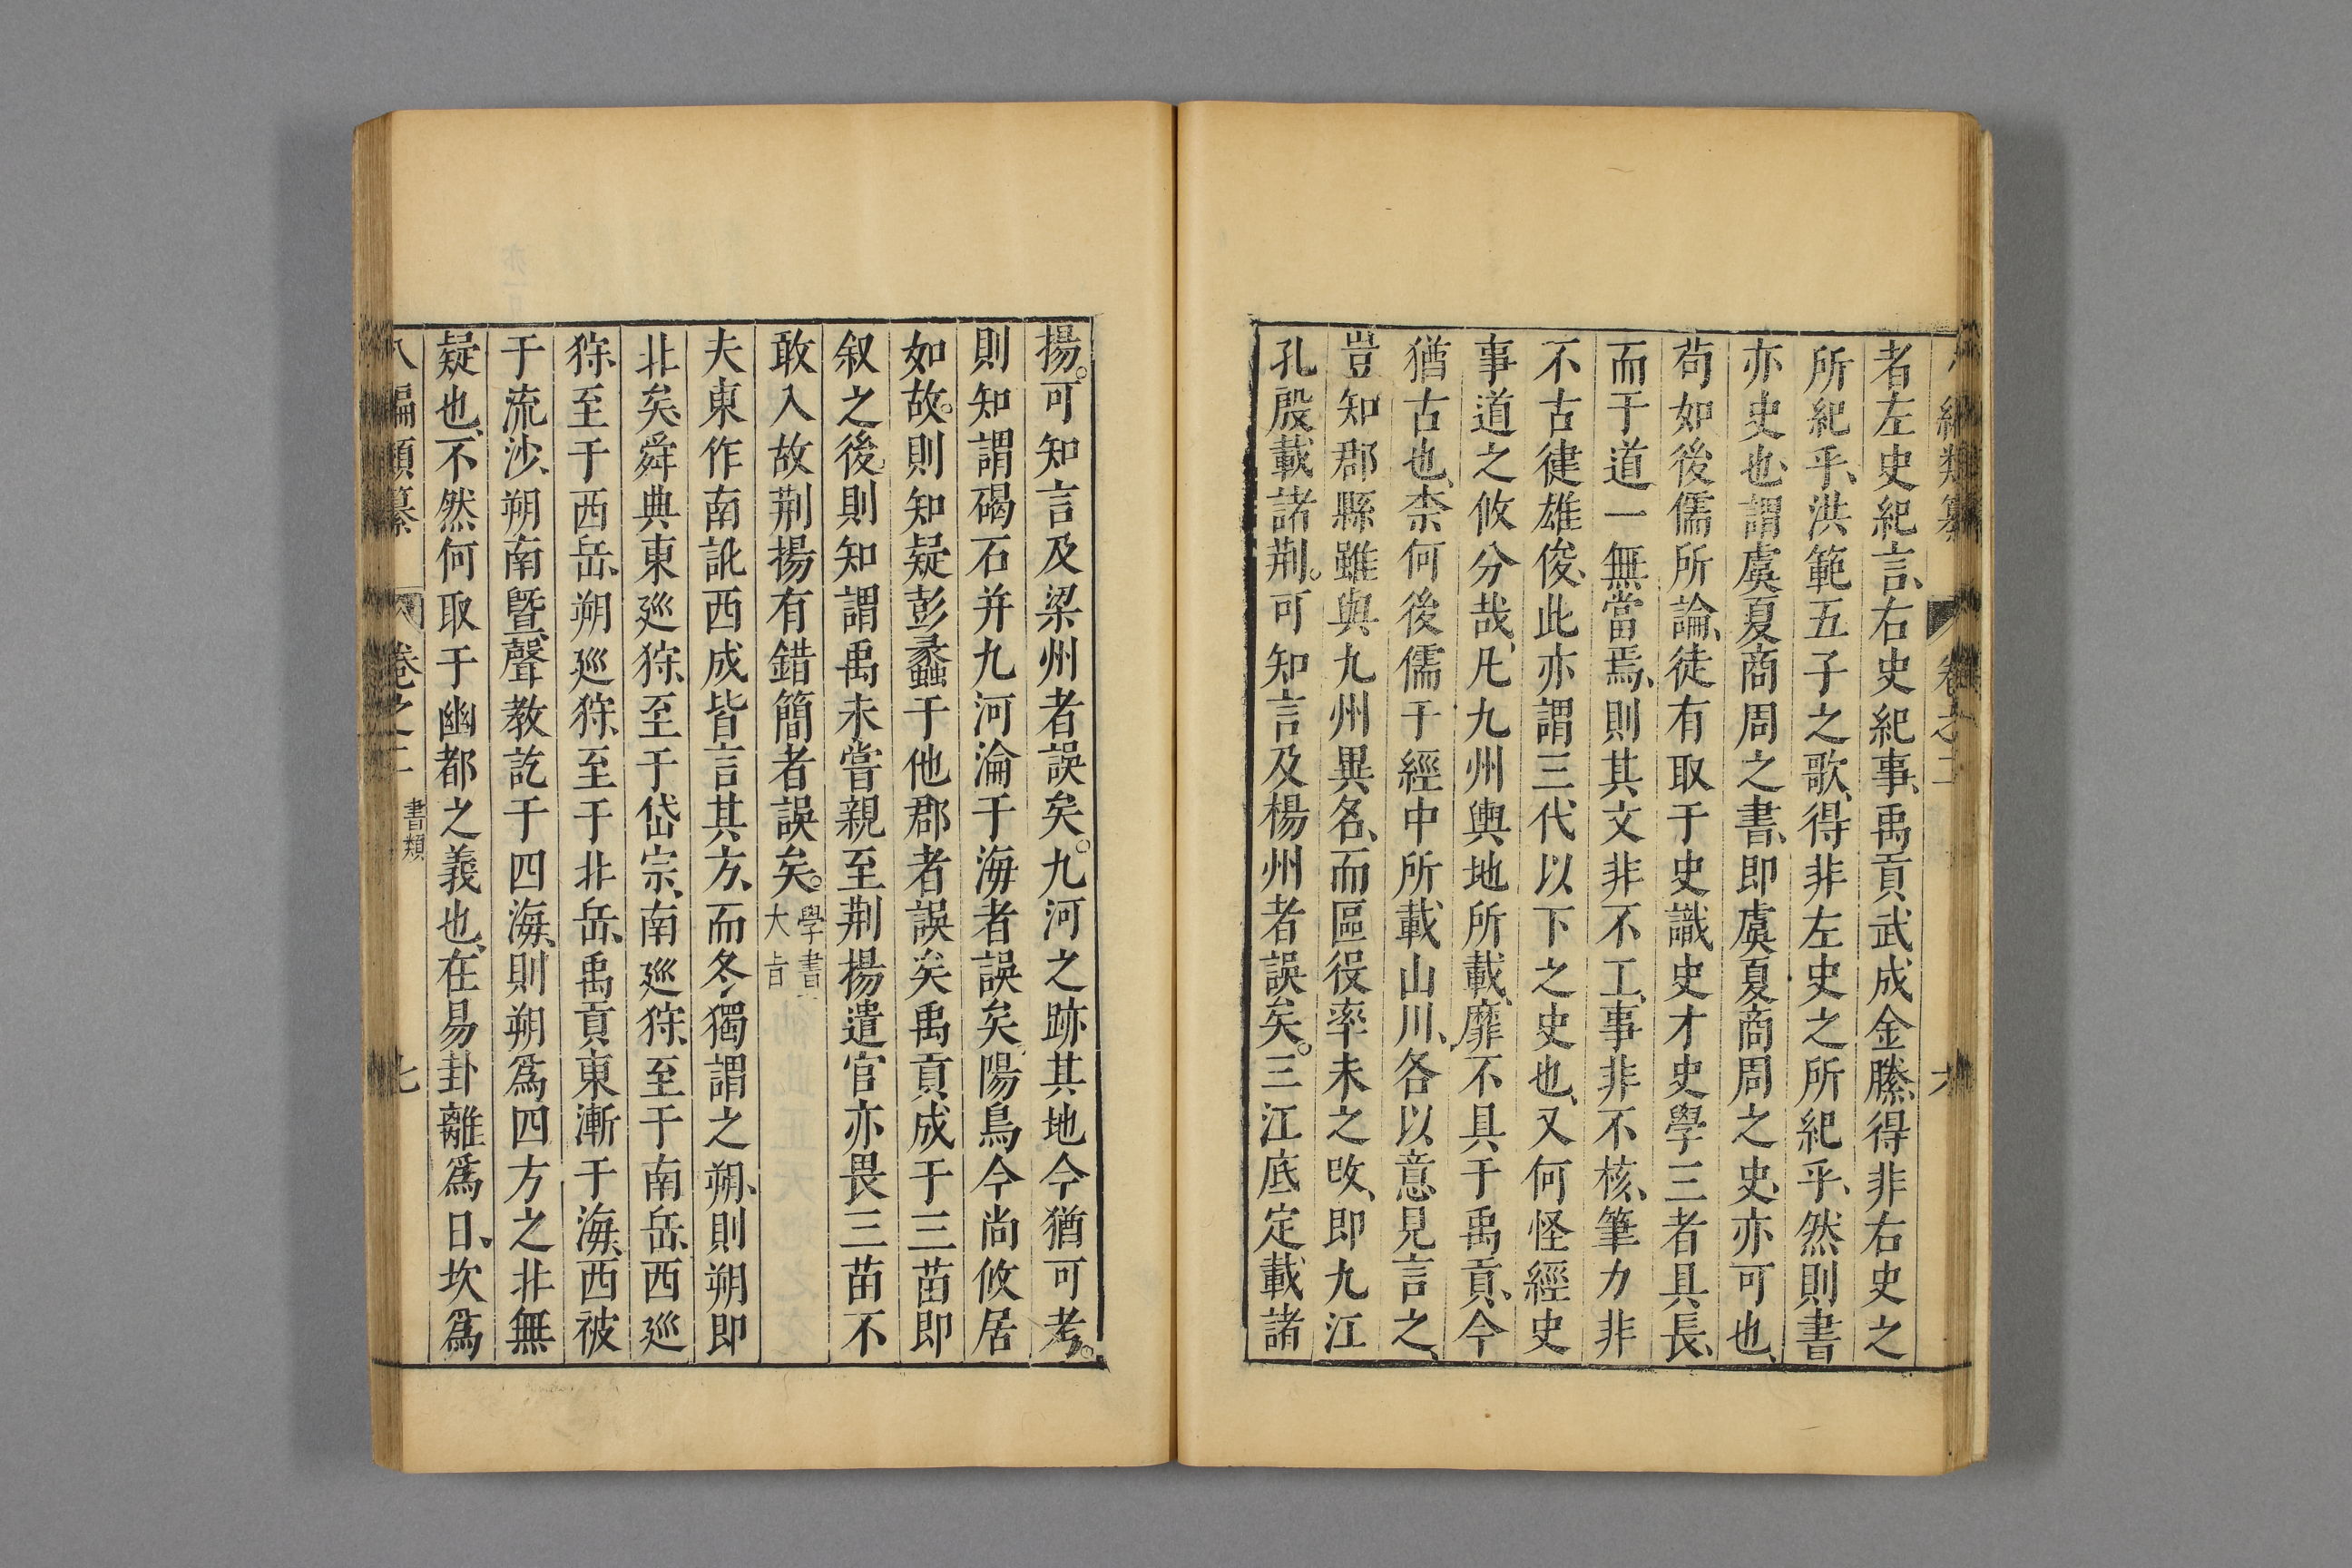 編類纂 卷之二 六
者左史紀言、右史紀事、禹貢武成金縢、得非右史之
所紀乎、洪範五子之歌、得非左史之所紀乎、然則書
亦史也、謂虞夏商周之書、即虞夏商周之史、亦可也、
苟如後儒所論、徒有取于史識史才史學三者具長、
而于道一無當焉、則其文非不工、事非不核、筆力非
不古健雄俊、此亦謂三代以下之史也、又何怪經史
事道之攸分哉、凡九州輿地所載、靡不具于禹貢、今
猶古也、柰何後儒于經中所載山川、各以意見言之、
豈知郡縣雖與九州異名、而區役率未之改、即九江
孔殷載諸荆。可知言及楊州者誤矣。三江底定載諸
揚。可知言及梁州者誤矣。九河之跡其地今猶可考。
則知謂碣石并九河淪于海者誤矣。陽鳥今尚攸居
如故。則知疑彭蠡于他郡者誤矣。禹貢成于三苗即
叙之後、則知謂禹未嘗親至荆揚遣官亦畏三苗不
敢入故荆揚有錯簡者誤矣。學書大旨
夫東作南訛西成皆言其方、而冬獨謂之朔、則朔即
北矣、舜典東廵狩、至于岱宗、南廵狩、至于南岳、西廵
狩、至于西岳、朔廵狩、至于北岳、禹貢東漸于海、西被
于流沙、朔南曁聲教訖于四海、則朔爲四方之北無
疑也、不然何取于幽都之義也、在易卦離爲日、坎爲
八編類纂 卷之二 書類 七